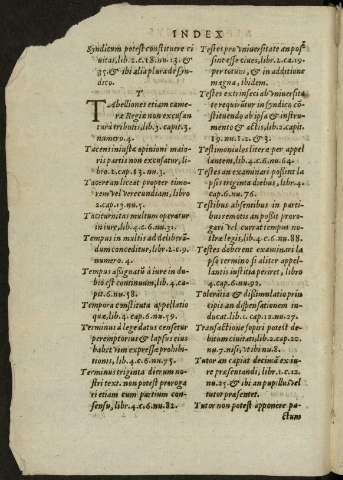 INDEX
Syndicum potest constituere ci
uitas, lib. 2. c. 18. nu. 13. &
35. & ibi alia plura de syn
dico.
T
Tabelliones etiam came
ræ Regiæ non excusan
tur à tributis, lib. 3. capit. 3.
numero. 4.
Tacens iniustæ opinioni maio
ris partis non excusatur, li-
bro. 2. cap. 13. nu. 3.
Tacere an liceat propter timo-
rem vel verecundiam, libro
2. cap. 13. nu. 5.
Taciturnitas multum operatur
in iure, lib. 4. c. 6. nu. 31.
Tempus in multis ad deliberã-
dum conceditur, lib. 2. c. 9.
numero. 4.
Tempus assignatũ à iure in du-
bio est continuum, lib. 4. ca-
pit. 6. nu. 58.
Tempora constituta appellatio
quæ, lib. 4. cap. 6. nu. 59.
Terminus à lege datus censetur
peremptorius & lapsus eius
habet vim expressæ prohibi-
tionis, lib. 4. c. 6. nu. 75.
Terminus triginta dierum no-
stri text. non potest proroga
ri etiam cum partium con-
sensu, libr. 4. c. 6. nu. 82.
Testes pro vniuersitate an pos̃
sint esse ciues, libr. 2. ca. 19.
per totum, & in additione
magna, ibidem.
Testes extrinseci ab vniuersita
te requirũtur in syndico cõ-
stituendo ab ipsa & instru-
mento & actis, lib. 2. capit.
19. nu. 1. 2. & 3.
Testimoniales literæ per appel
lantem, lib. 4. c. 6. nu. 64.
Testes an examinari possint la
psis triginta diebus, libr. 4.
cap. 6. nu. 76.
Testibus absentibus in parti-
bus remotis an possit proro-
gari vel currat tempus no-
stræ legis, lib. 4. c. 6. nu. 88.
Testes debent examinari la
pso termino si aliter appel-
lantis iustitia periret, libro
4. cap. 6. nu. 92.
Tolerãtia & dissimulatio prin-
cipis an dispensationem in-
ducat. lib. 1. cap. 12. nu. 27.
Transactione sopiri potest de-
bitum ciuitatis, lib. 2. cap. 20.
nu. 7. nisi, vt ibi nu. 8.
Tutor an capiat decimã ex iu-
re præsentandi, libr. 1. c. 12.
nu. 25. & ibi an pupillus vel
tutor præsentet.
Tutor non potest opponere pa-
ctum